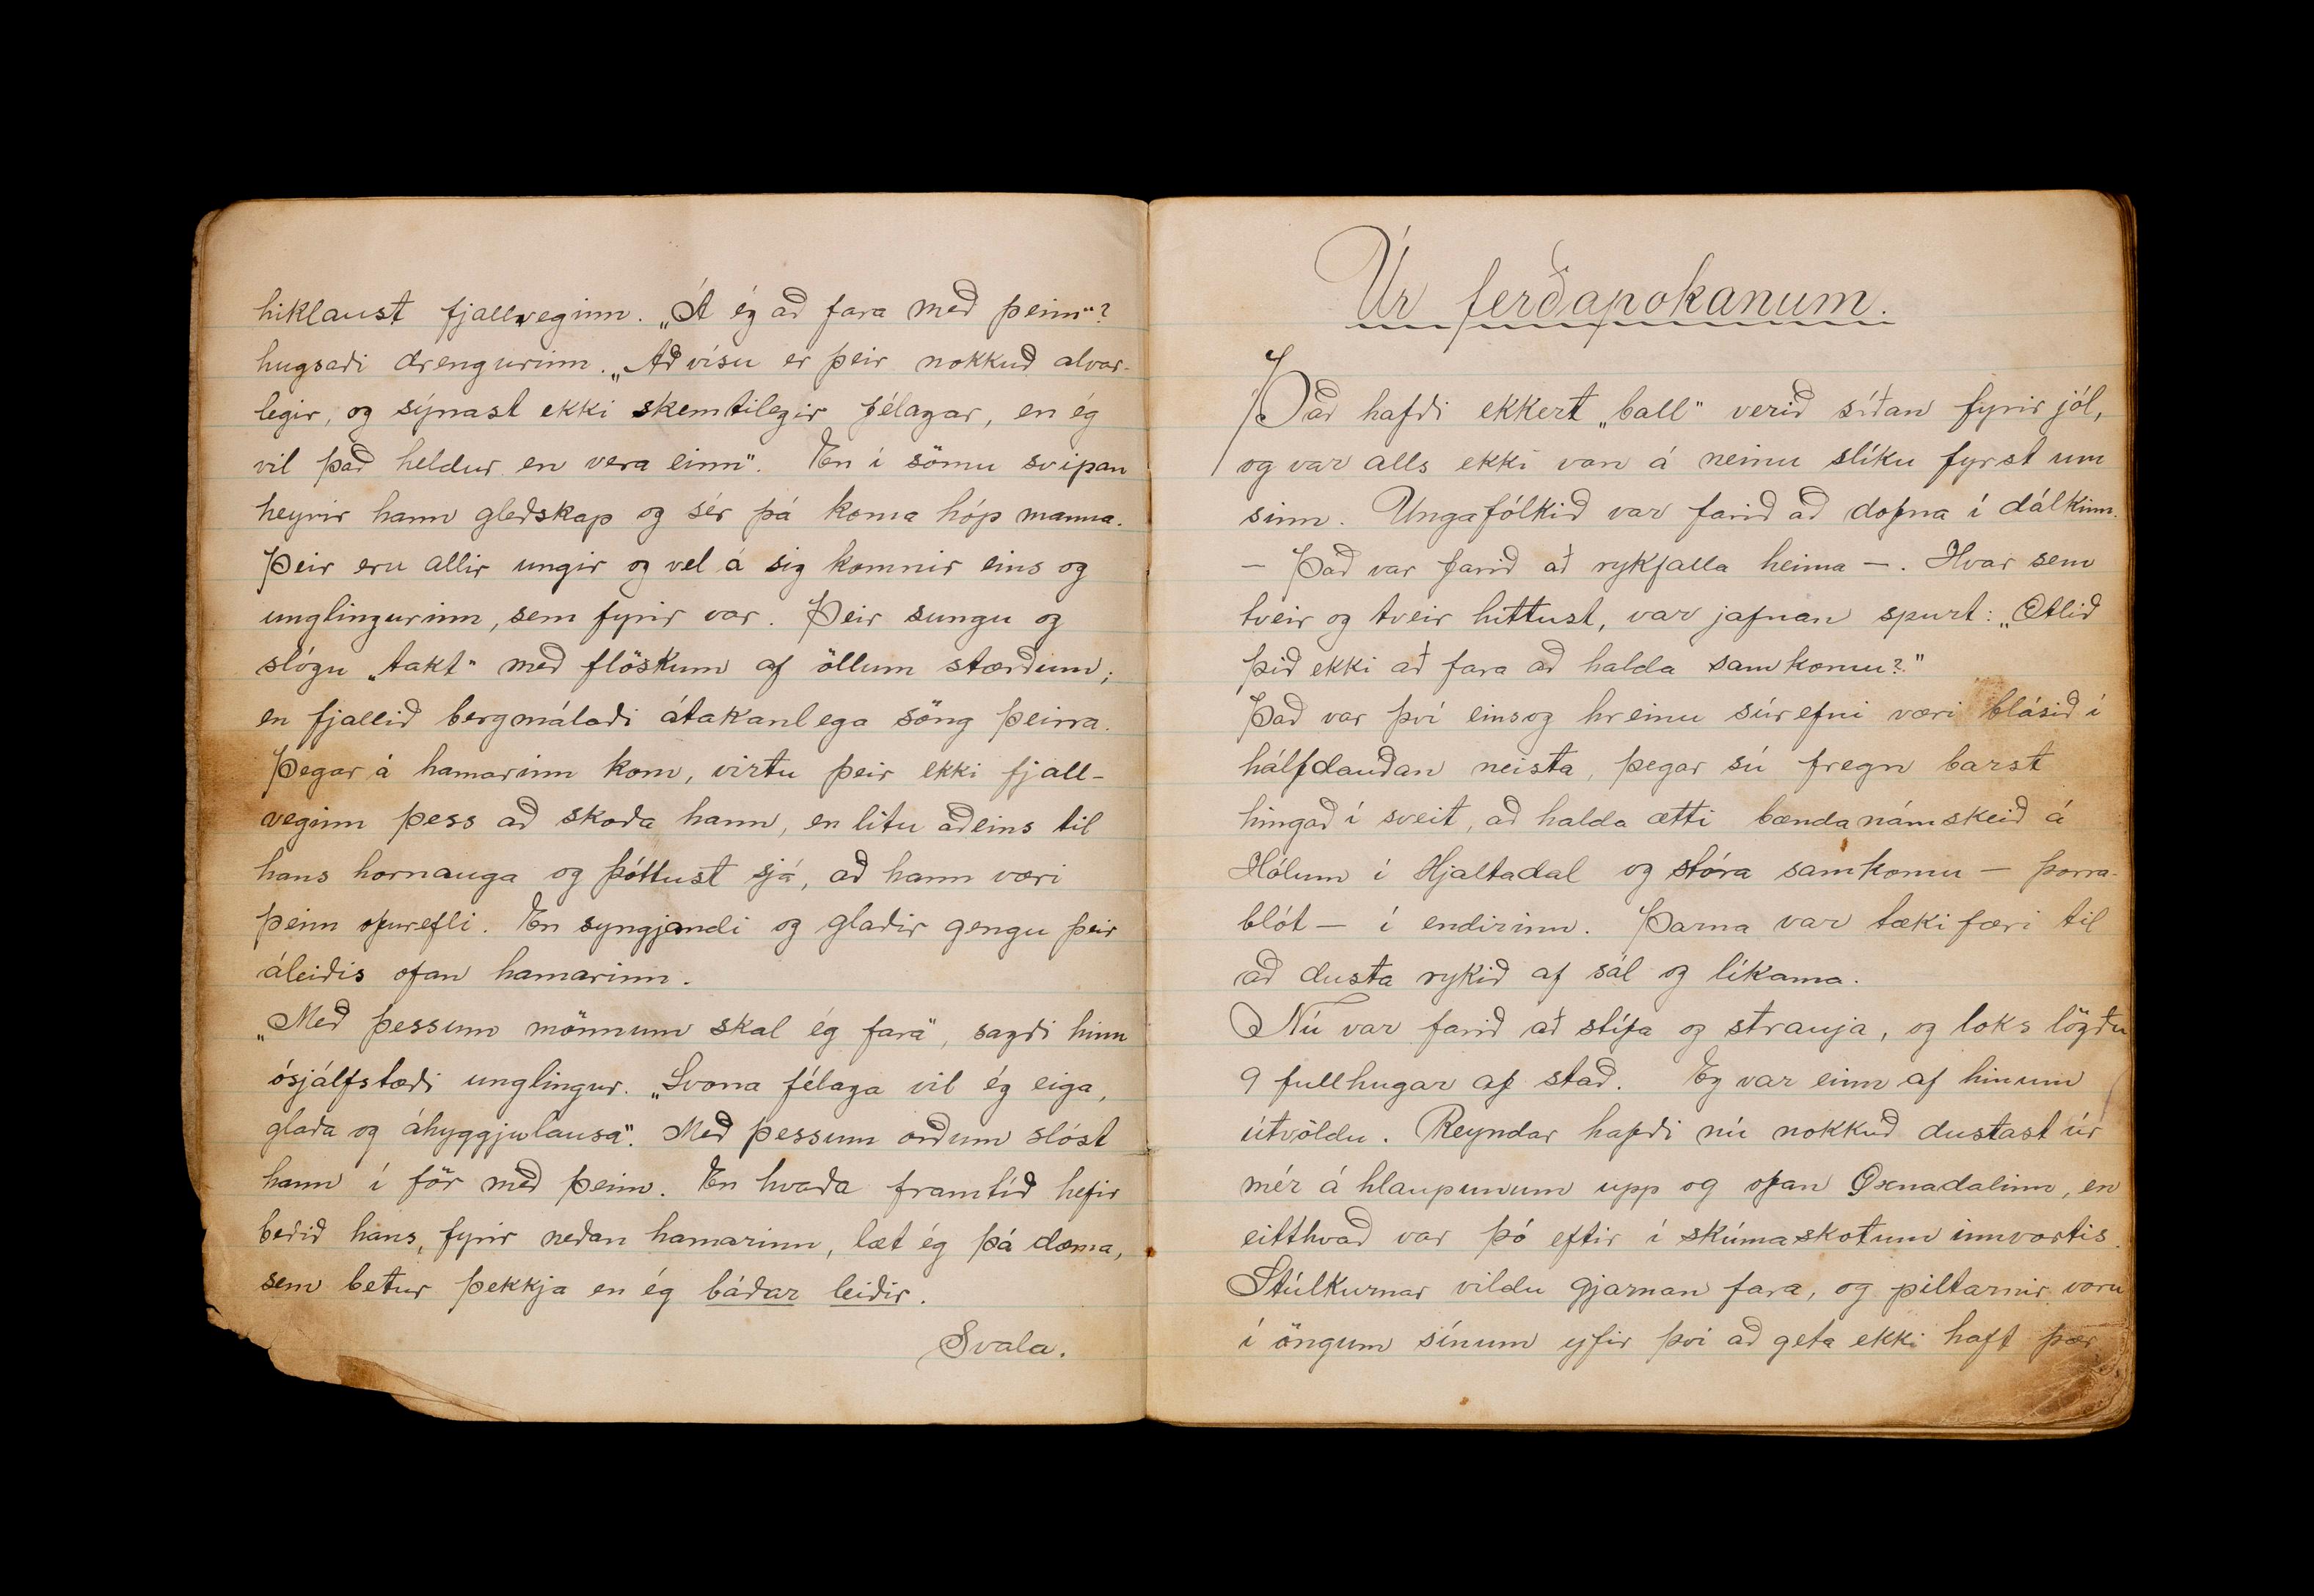 hiklaust fjallveginn. „Á ég að fara með þeim“?
hugsaði drengurinn. „Að vísu er þeir nokkuð alvar-
legir, og sýnast ekki skemtilegir félagar, en ég
vil það heldur en vera einn“. En í sömu svipan
heyrir hann gleðskap og sér þá koma hóp manna.
Þeir eru allir ungir og vel á sig komnir eins og
unglingurinn, sem fyrir var. Þeir sungu og
slógu „takt“ með flöskum af öllum stærðum;
en fjallið bergmálaði átakanlega söng þeirra.
Þegar á hamarinn kom, virtu þeir ekki fjall-
veginn þess að skoða hann, en litu aðeins til
hans hornauga og þóttust sjá, að hann væri
þeim ofurefli. En syngjandi og glaðir gengu þeir
áleiðis ofan hamarinn.
„Með þessum mönnum skal ég fara“, sagði hinn
ósjálfstæði unglingur. „Svona félaga vil ég eiga,
glaða og áhyggjulausa“. Með þessum orðum slóst
hann í för með þeim. En hvaða framtíð hefir
beðið hans, fyrir neðan hamarinn, læt ég þá dæma,
sem betur þekkja en ég báðar leiðir.
Svala.
Úr ferðapokanum.
Það hafði ekkert „ball“ verið síðan fyrir jól,
og var alls ekki von á neinu slíku fyrst um
sinn. Ungafólkið var farið að dofna í dálkinn.
– Það var farið að rykfalla heima –. Hvar sem
tveir og tveir hittust, var jafnan spurt: „Ætlið
þið ekki að fara að halda samkomu?“
Það var því eins og hreinu súrefni væri blásið í
hálfdauðan neista, þegar sú fregn barst
hingað í sveit, að halda ætti bændanámskeið á
Hólum í Hjaltadal og stóra samkomu – þorra-
blót – í endirinn. Þarna var tækifæri til
að dusta rykið af sál og líkama.
Nú var farið að stífa og strauja, og loks lögðu
9 fullhugar af stað. Eg var einn af hinum
útvöldu. Reyndar hafði nú nokkuð dustast úr
mér á hlaupunum upp og ofan Öxnadalinn, en
eitthvað var þó eftir í skúmaskotum innvortis.
Stúlkurnar vildu gjarnan fara, og piltarnir voru
í öngum sínum yfir því að geta ekki haft þær